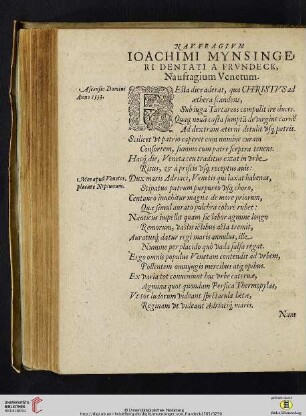 NAVFRAGIVM
IOACHIMI MYNSINGE,
RI DENTATI A FRVNDECK,
Naufragium Venetum.
Ascensio Domini
Anno 1533.
ELla dies aderat, qua CHRISTVS ad
æthera scandens,
Sub iuga Tartareos compulit ire duces.
Quaq; noua casta sumpta de virgine carne
Ad dextram æterni detulit vsq; patris.
Scilicet vt patrio caperet cum numine curam
Consortem, summi cum patre sceptra tenens.
Hacq; die, Veneta ceu traditur extat in vrbe
Ritus, ex priscis vsq; receptus auis:
Mos apud Venetos,
placare Neptunum.
Dux maris Adriaci, Veneti qui iura habenat,
Stipatus patrum purpureo vsq; choro,
Centauro inuehitur magnæ de more priorum,
Quem simul aurato pulchra colore nitet.
Nauticus impellit quam sic labor agmine longo
Remorum, vastis ictibus alta tremit,
Auratusq; datur regi maris annulus, ille
Numine perplacido quò vada salsa regat.
Ergo omnis populus Venetum contendit ab vrbem,
Pollentem innuptis moribus atq; opibus.
Ex varia tot conueniunt hac vrbe cateruæ,
Agmina quot quondam Persica Thermopylas,
Vt tot ludorum vidiant spectacula læta,
Reginam vt videant Adriaciq; maris.
Nam
UNIVERSITÄTS-
BIBLIOTHEK
HEIDELBERG
© Universitätsbibliothek Heidelberg